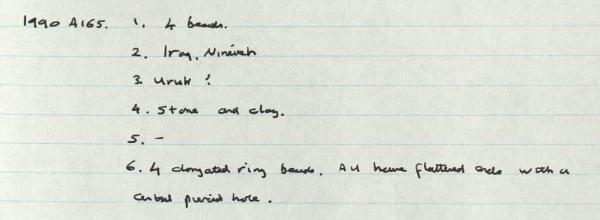 1990 A165. 1. 4 beads.
2. Iraq, Nineveh
3. Uruk ?
4. Stone and clay.
5. -
6. 4 elongated ring beads. All have flattened ends with a
central pierced hole.